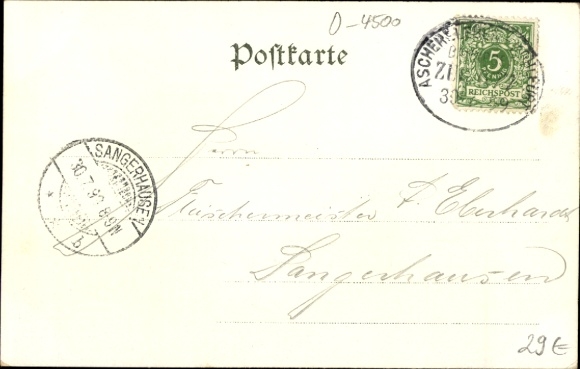 D-4500
Postkarte
5
PFENNIG
REICHSPOST
SANGERHAUSEN
30.7.9
8-9N
b
Herrn
Fleischermeister F. Eberhardt
Sangerhausen
29€